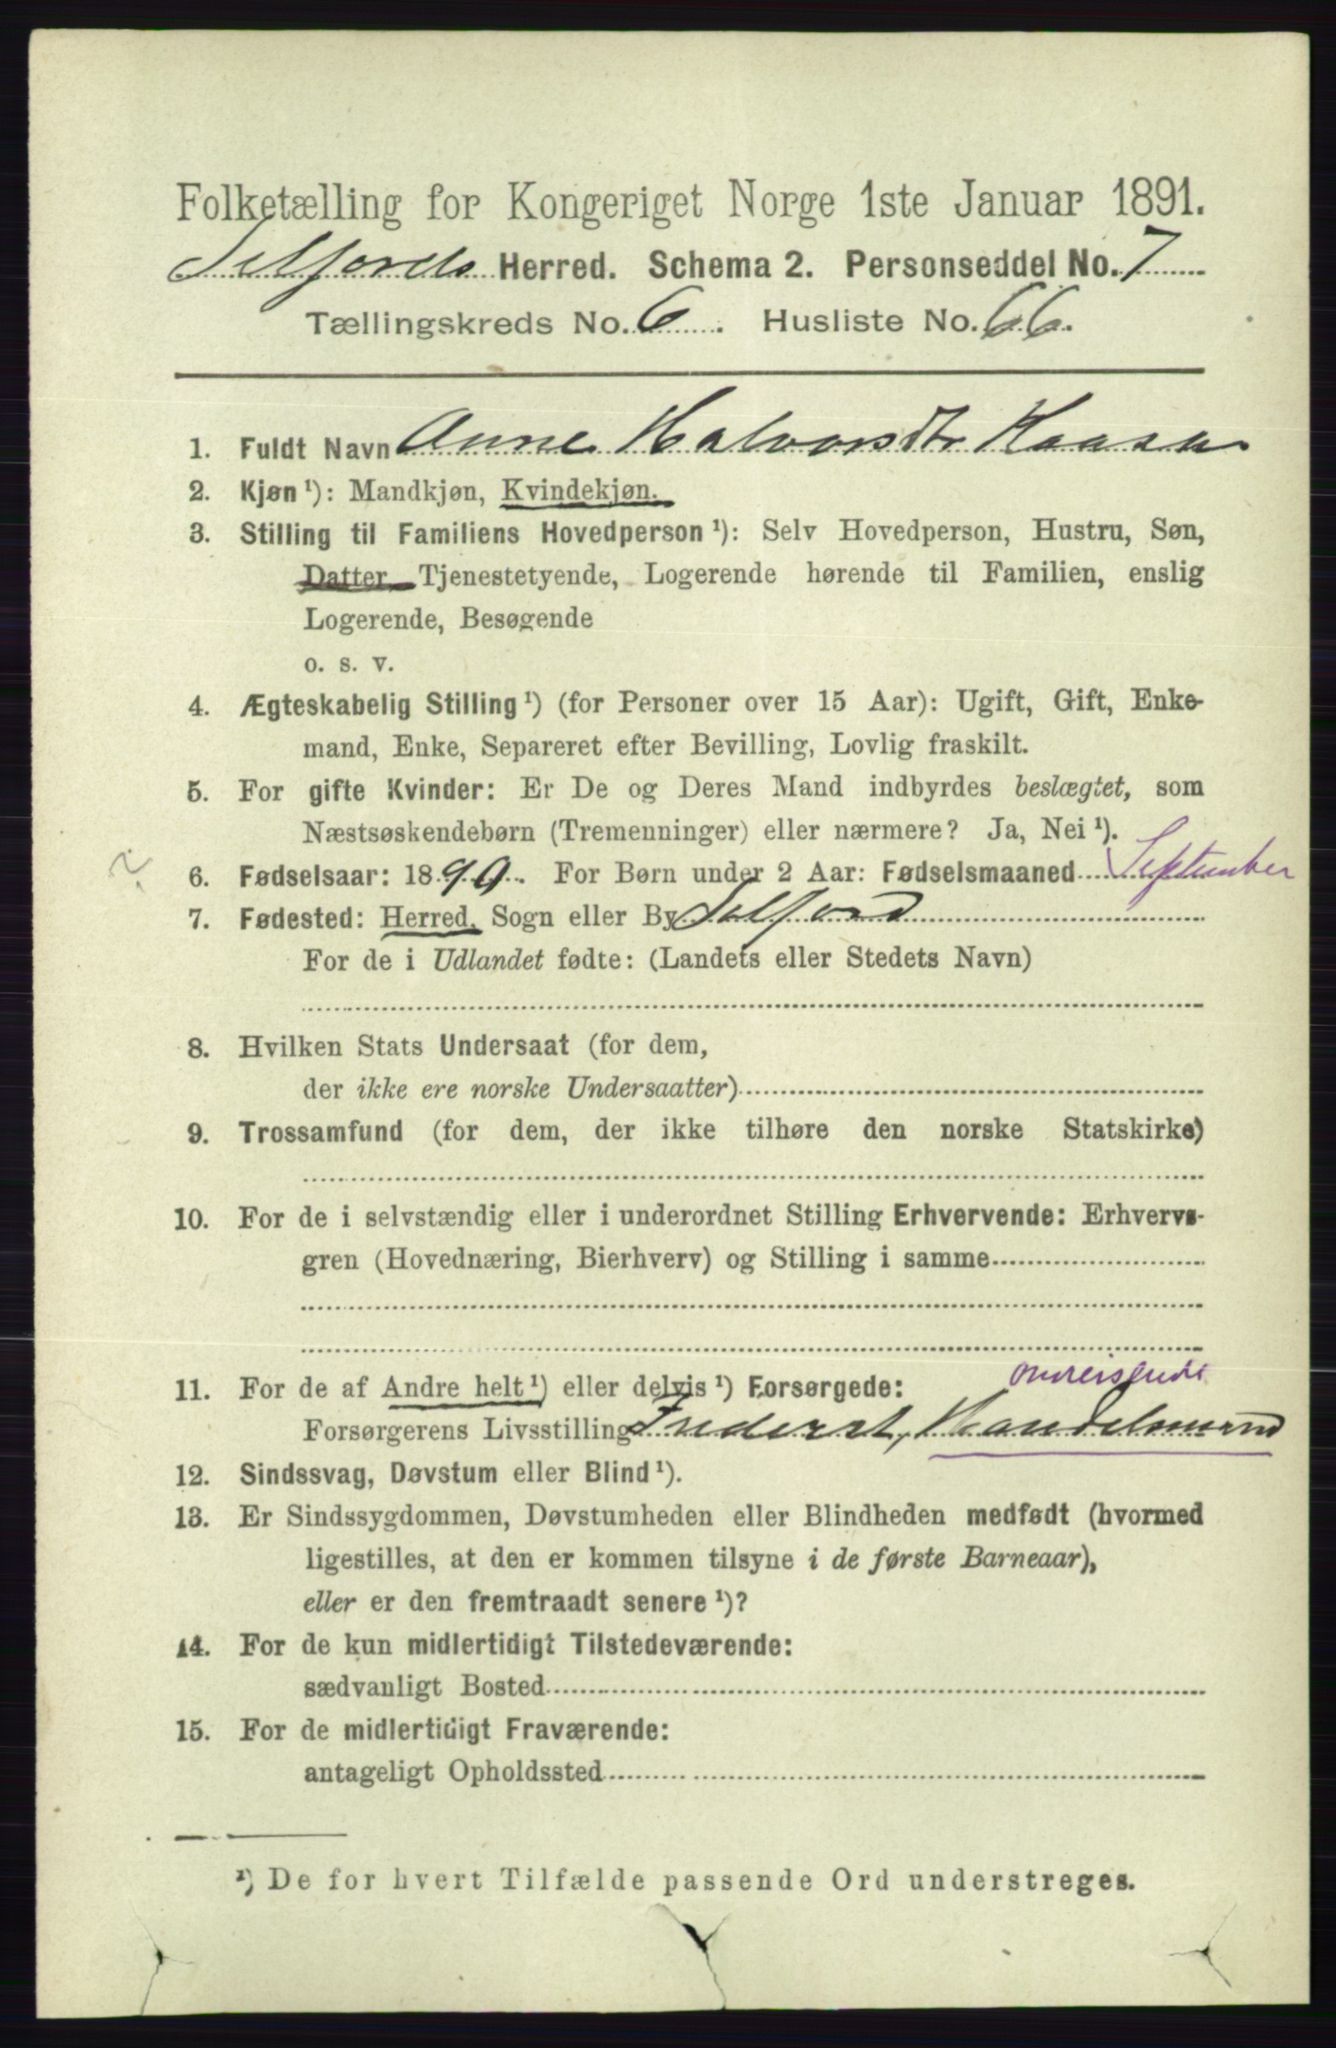 Folketælling for Kongeriget Norge 1ste Januar 1891.
Selfjords Herred. Schema 2. Personseddel No. 7
Tællingskreds No. 6. Husliste No. 66.
1. Fuldt Navn Anne Halvorsdtr Haasa
2. Kjøn ¹): Mandkjøn, Kvindekjøn.
3. Stilling til Familiens Hovedperson ¹): Selv Hovedperson, Hustru, Søn,
Datter, Tjenestetyende, Logerende hørende til Familien, enslig
Logerende, Besøgende
o. s. v.
4. Ægteskabelig Stilling ¹) (for Personer over 15 Aar): Ugift, Gift, Enke-
mand, Enke, Separeret efter Bevilling, Lovlig fraskilt.
5. For gifte Kvinder: Er De og Deres Mand indbyrdes beslægtet, som
Næstsøskendebørn (Tremenninger) eller nærmere? Ja, Nei ¹).
6. Fødselsaar: 1890. For Børn under 2 Aar: Fødselsmaaned September
7. Fødested: Herred, Sogn eller By Selfjord
For de i Udlandet fødte: (Landets eller Stedets Navn)
8. Hvilken Stats Undersaat (for dem,
der ikke ere norske Undersaatter)
9. Trossamfund (for dem, der ikke tilhøre den norske Statskirke)
10. For de i selvstændig eller i underordnet Stilling Erhvervende: Erhvervs-
gren (Hovednæring, Bierhverv) og Stilling i samme
omreisende
11. For de af Andre helt ¹) eller delvis ¹) Forsørgede:
Forsørgerens Livsstilling Inderst, Handelsmand
12. Sindssvag, Døvstum eller Blind ¹).
13. Er Sindssygdommen, Døvstumheden eller Blindheden medfødt (hvormed
ligestilles, at den er kommen tilsyne i de første Barneaar),
eller er den fremtraadt senere ¹)?
14. For de kun midlertidigt Tilstedeværende:
sædvanligt Bosted
15. For de midlertidigt Fraværende:
antageligt Opholdssted
¹) De for hvert Tilfælde passende Ord understreges.